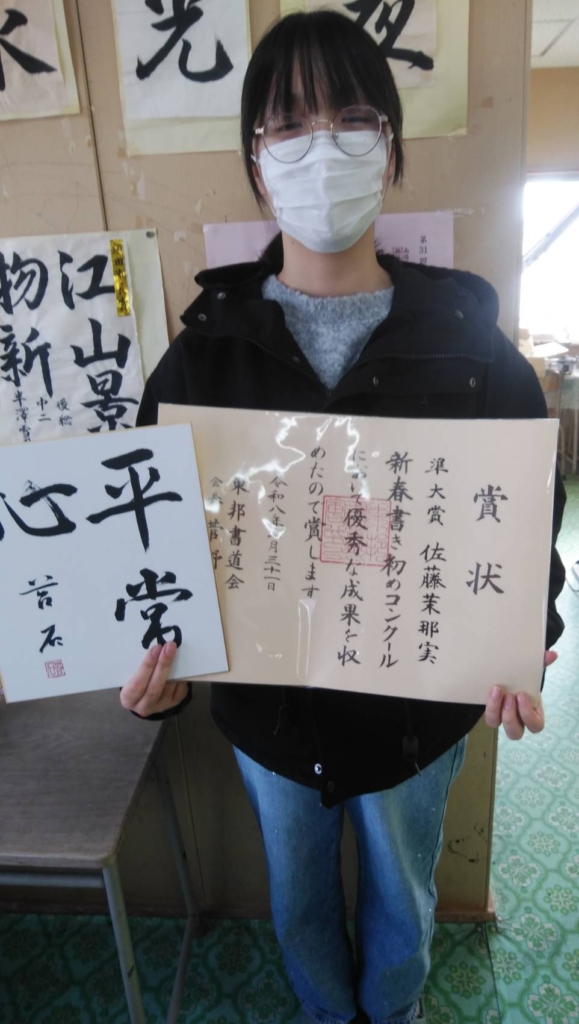 水
光
夜
第31回
江山景
物新
後
中二
賞状
準大賞 佐藤茉那実
新春書き初めコンクール
において優秀な成果を収
めたので賞します
令和八年 月三十一日
東邦書道会
会長 菅野
平常
心